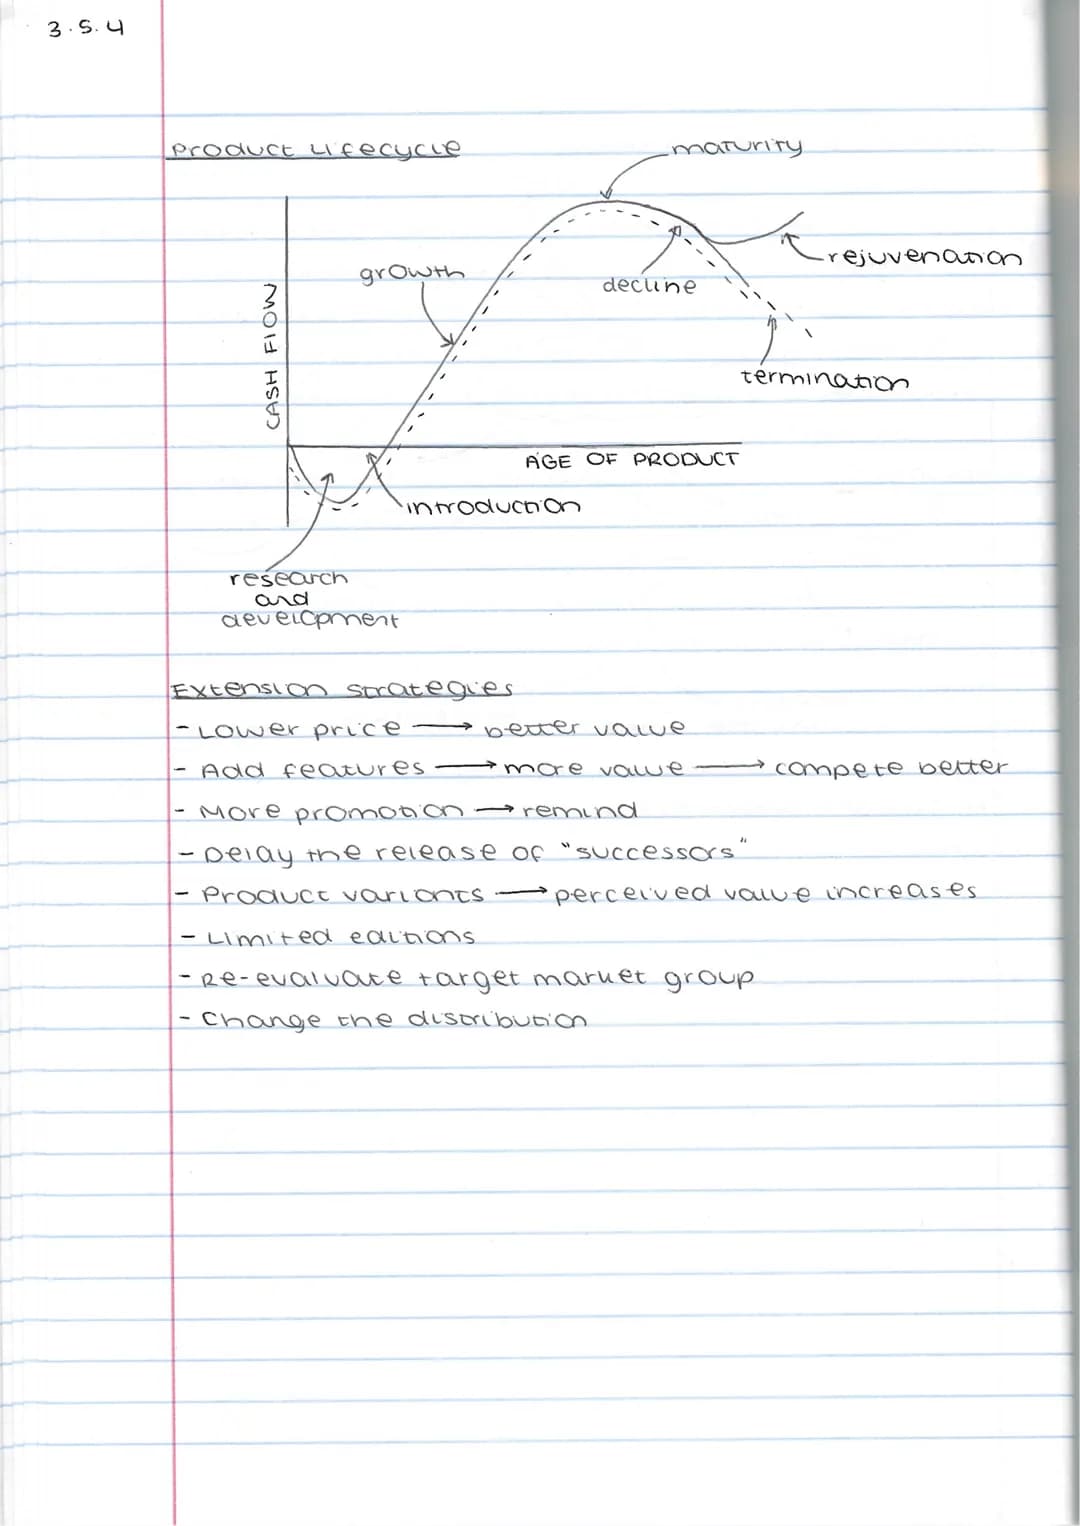 3.5.4
Product Lifecycle
maturity
rejuvenation
growth
decline
CASH FLOW
termination
AGE OF PRODUCT
introduction
research
and
development
Extension strategies
- Lower price → better value
- Add features → more value → compete better
- More promotion → remind
- Delay the release of "successors"
- Product variants → perceived value increases
- Limited editions
- Re-evaluate target market group
- Change the distribution